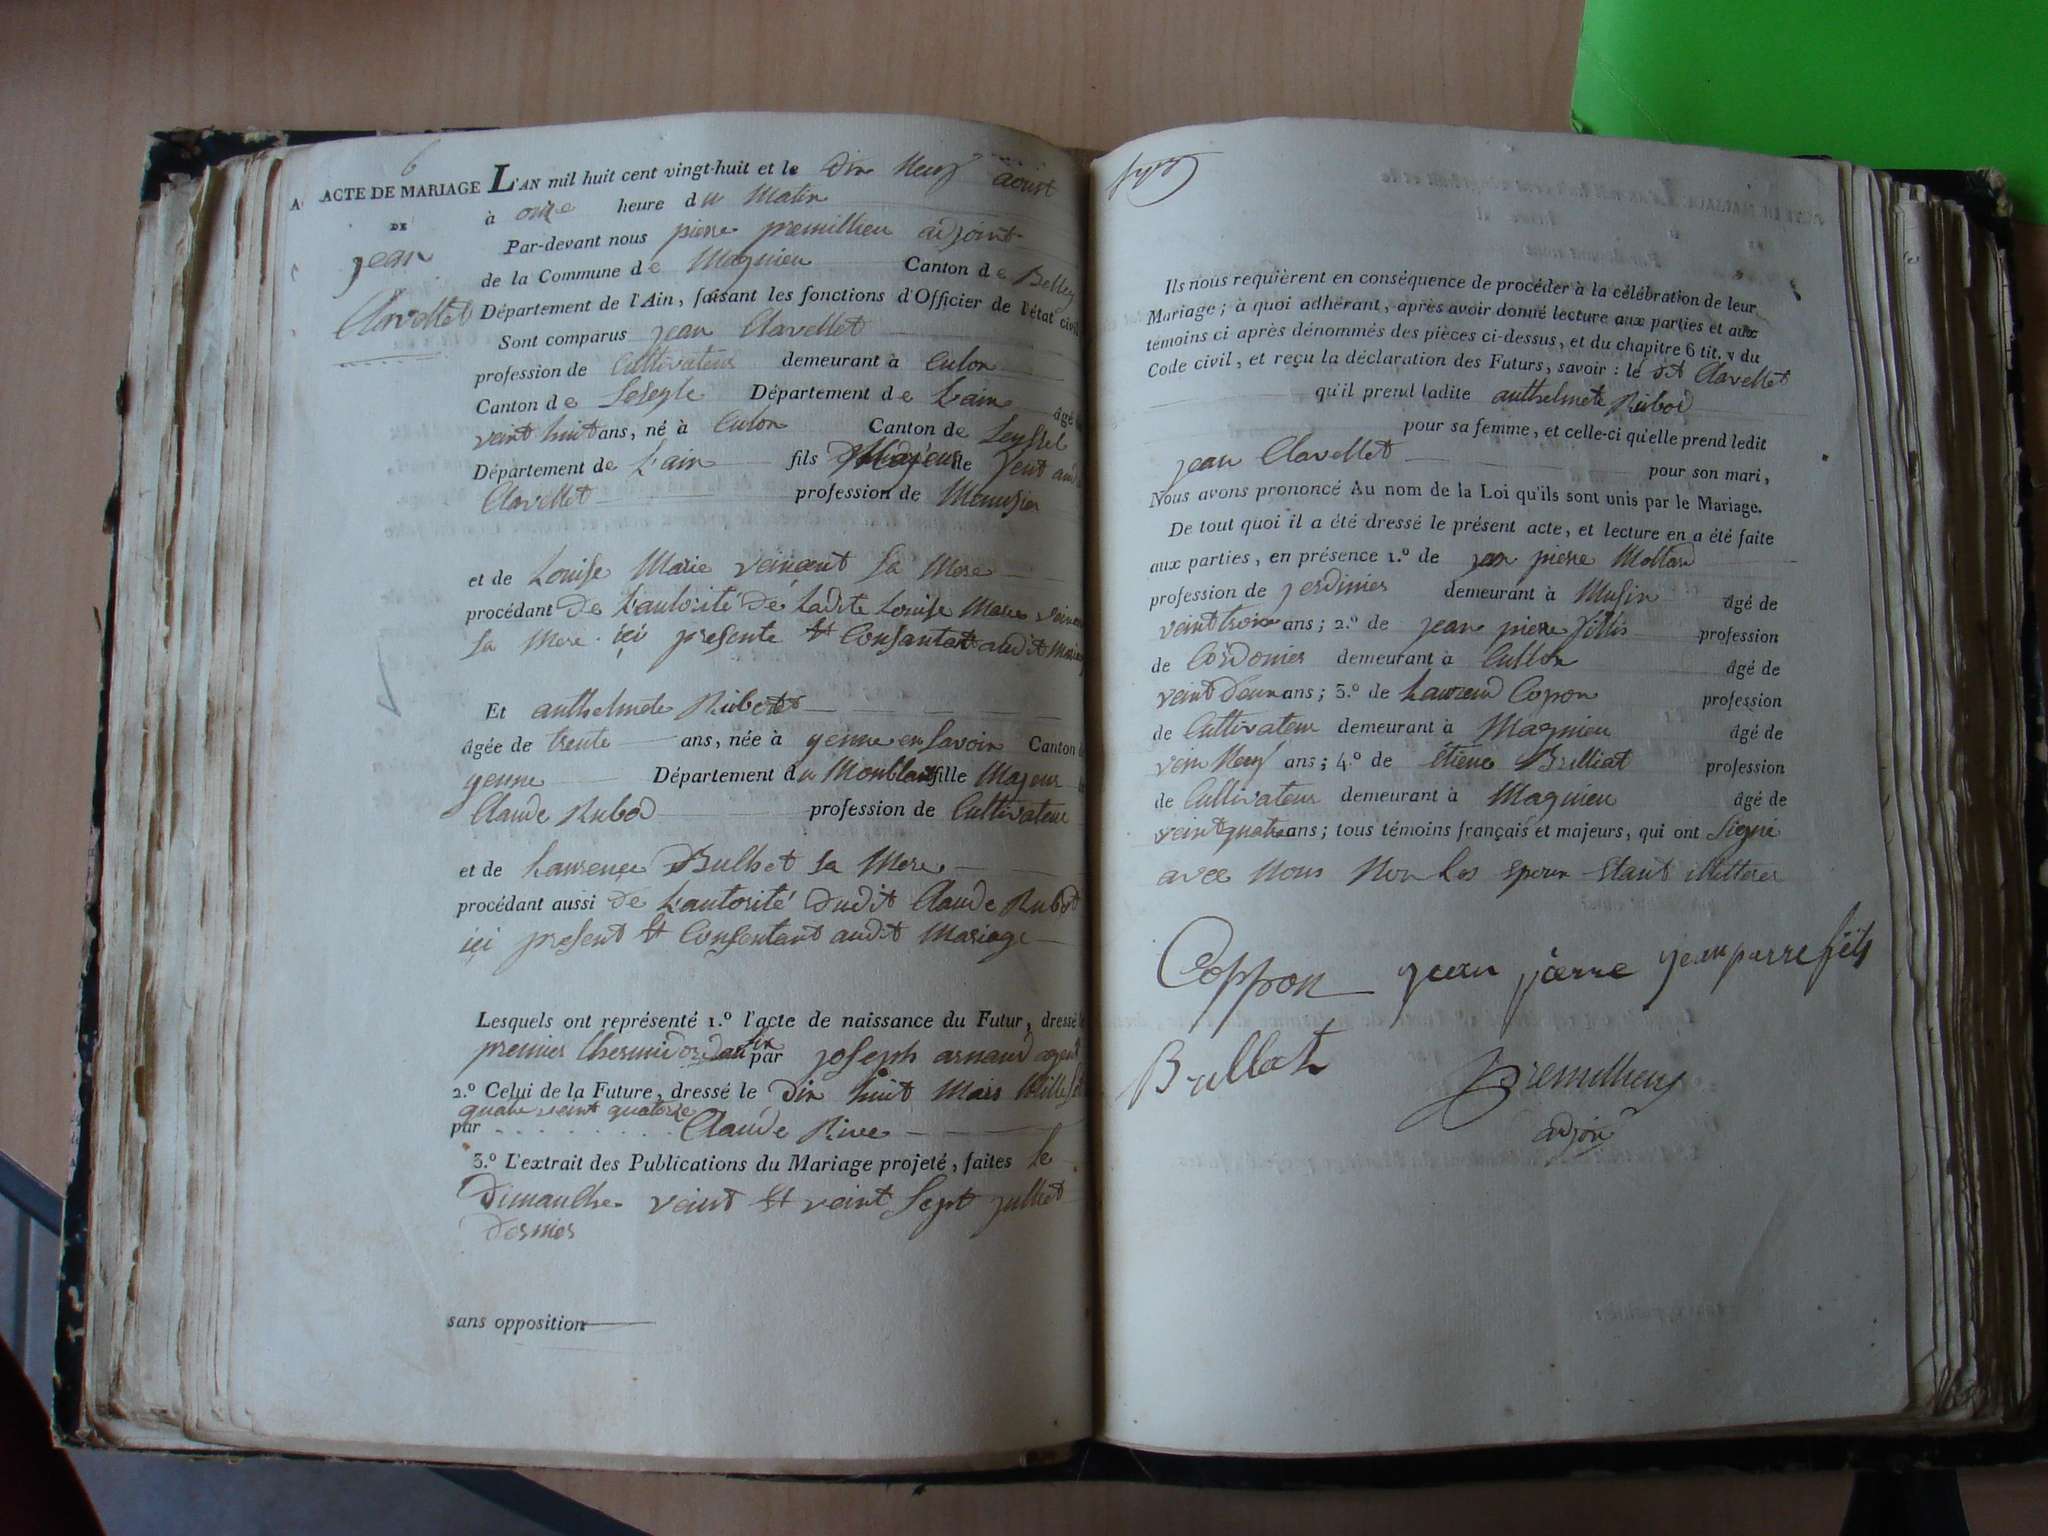 6
ACTE DE MARIAGE L'AN mil huit cent vingt-huit et le dix Neuf aoust
à onze heure du Matin
DE
jean
Clavellet
Par-devant nous pierre premillieu adjoint
de la Commune de Magnieu Canton de Belley
Département de l'Ain, faisant les fonctions d'Officier de l'état civil
Sont comparus jean Clavellet
profession de Cultivateur demeurant à Culon
Canton de Seseyle Département de L'ain âgé
veint huit ans, né à Culon Canton de Seyssel
Département de L'ain fils Majeur de
Clavellet profession de Menusier
et de Louise Marie veincent sa Mere
procédant De L'autorité De Ladite Louise Marie
sa Mere ici presente Et Consantant audit
Et anthelmete Rubod
âgée de trente ans, née à yenne en Savoir Canton
yenne Département du Monblanc fille Majeur
Claude Rubod profession de Cultivateur
et de Laurence Bulhet sa Mere
procédant aussi de L'autorité Dudit Claude Rubod
ici present Et Consentant audit Mariage
Lesquels ont représenté 1.º l'acte de naissance du Futur, dressé
premier thermidor an six par joseph arnaud agent
2.º Celui de la Future, dressé le Dix huit Mars Mille
quatre veint quatorze
par Claude Rive
3.º L'extrait des Publications du Mariage projeté, faites Le
Dimanche veint Et veint Sept julliet
Dernier
sans opposition
Ils nous requièrent en conséquence de procéder à la célébration de leur
Mariage; à quoi adhérant, après avoir donné lecture aux parties et aux
témoins ci après dénommés des pièces ci-dessus, et du chapitre 6 tit. v du
Code civil, et reçu la déclaration des Futurs, savoir: le dt Clavellet
qu'il prend ladite anthelmete Rubod
pour sa femme, et celle-ci qu'elle prend ledit
jean Clavellet pour son mari,
Nous avons prononcé Au nom de la Loi qu'ils sont unis par le Mariage.
De tout quoi il a été dressé le présent acte, et lecture en a été faite
aux parties, en présence 1.º de jean pierre Mollard
profession de jerdinier demeurant à Musin âgé de
veint trois ans; 2.º de jean pierre fillis profession
de Cordonier demeurant à Cullon âgé de
veint Deux ans; 3.º de Laurend Copon profession
de Cultivateur demeurant à Magnieu âgé de
vein Neuf ans; 4.º de Étiene Brilliat profession
de Cultivateur demeurant à Magnieu âgé de
veint quatre ans; tous témoins français et majeurs, qui ont Signé
avec Nous Non Les epoux Etant illetterer
Coppon jean pierre jean pierre
Brillat premillieu
adjoin